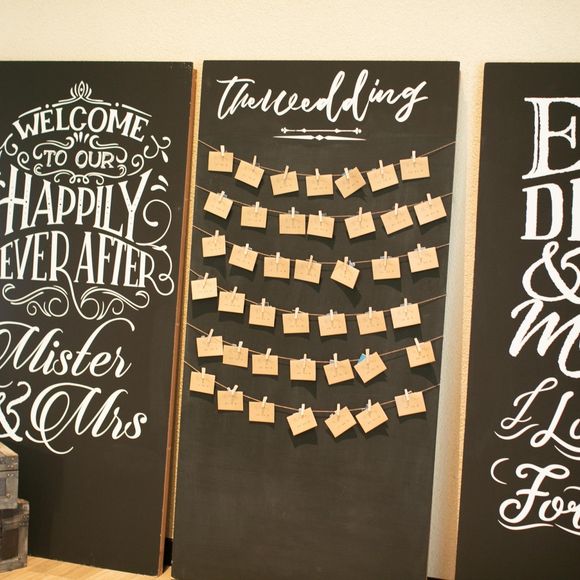 WELCOME
TO OUR
HAPPILY
EVER AFTER
Mister
& Mrs
the wedding
E
D
&
M
I L
For